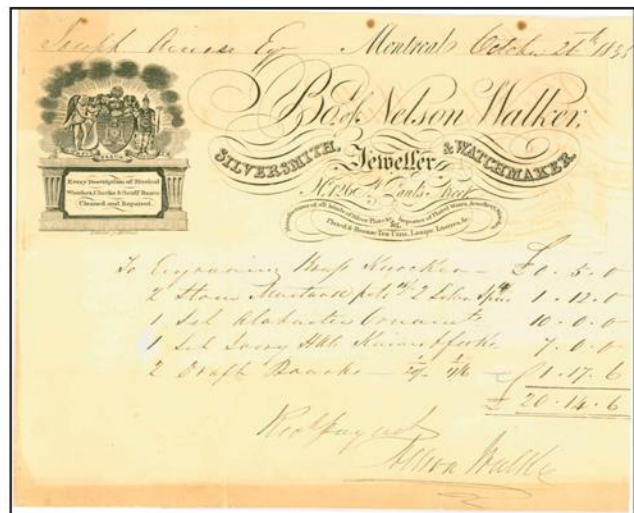 Joseph Esq Montreal October 26th 1835
Bot. of Nelson Walker,
SILVERSMITH, Jeweller & WATCHMAKER.
No. 126 St. Paul's Street
Manufacturer of all kinds of Silver Plate &c. Importer of Plated Wares, Jewellery, Watches,
&c.
Plated & Bronze Tea Urns, Lamps, Lustres, &c.
Every Description of Musical
Watches, Clocks & Snuff Boxes
Cleaned and Repaired.
To Engraving Brass Knocker — £ 0 . 5 . 0
2 Stone Mustard pots wt 2 Silver Spns 1 . 12 . 0
1 Set Alabaster Ornamts 10 . 0 . 0
1 Set Ivory Hdle Knives & forks 7 . 0 . 0
2 Draft Boards — 20/- 17/6 — 1 . 17 . 6
£ 20 . 14 . 6
Recd payment
Nelson Walker